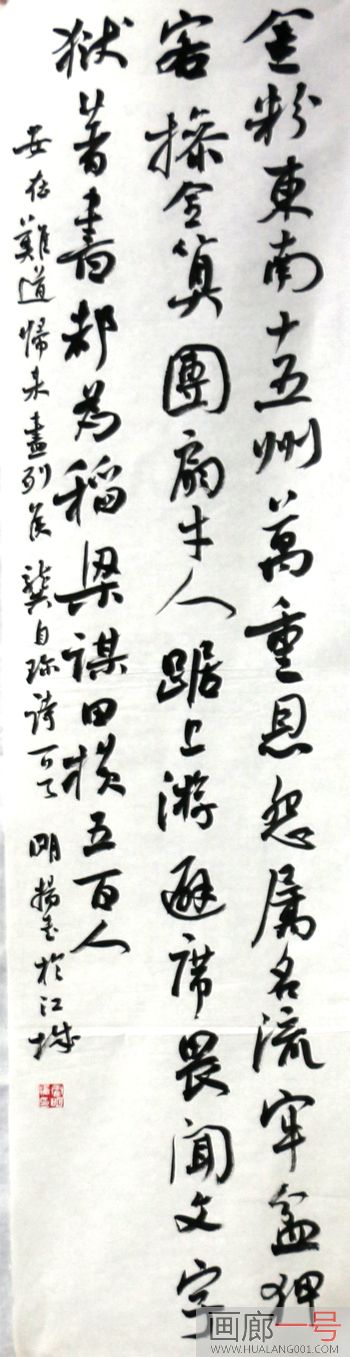 金粉東南十五州萬重恩怨属名流牢盆狎
客操全算團扇才人踞上游避席畏聞文字
獄著書都為稻梁謀田横五百人
安在難道歸来盡列侯 龔自珍詩一首 明揚書於江城
画廊一号
WWW.HUALANG001.COM